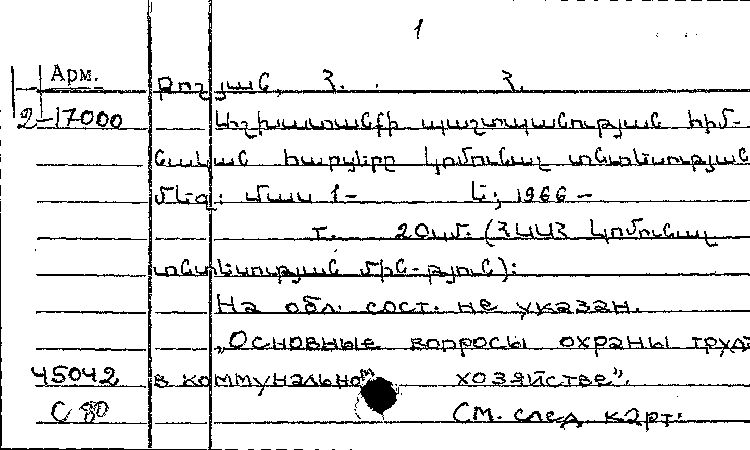 1
Арм. Քոչյան, Հ. Հ.
2-17000 Աշխատանքի պաշտպանության հիմ-
նական հարցերը կոմունալ տնտեսության
մեջ: Մաս 1- Ե., 1966-
т. 20սմ. (ՀՍՍՀ կոմունալ
տնտեսության մին-թյուն):
На обл. сост. не указан.
„Основные вопросы охраны труда
45042 в коммунальном хозяйстве”.
С 80 См. след. карт: